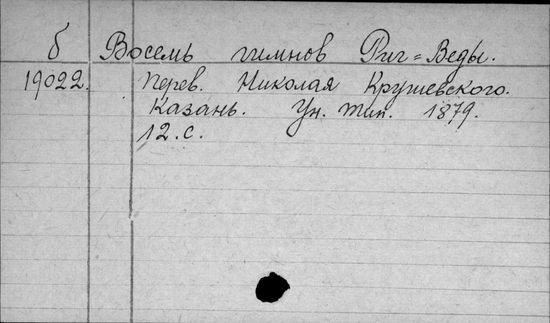 б Восемь гимнов Риг=Веды.
19022. Перев. Николая Крушевского.
Казань. Ун. тип. 1879.
12. с.